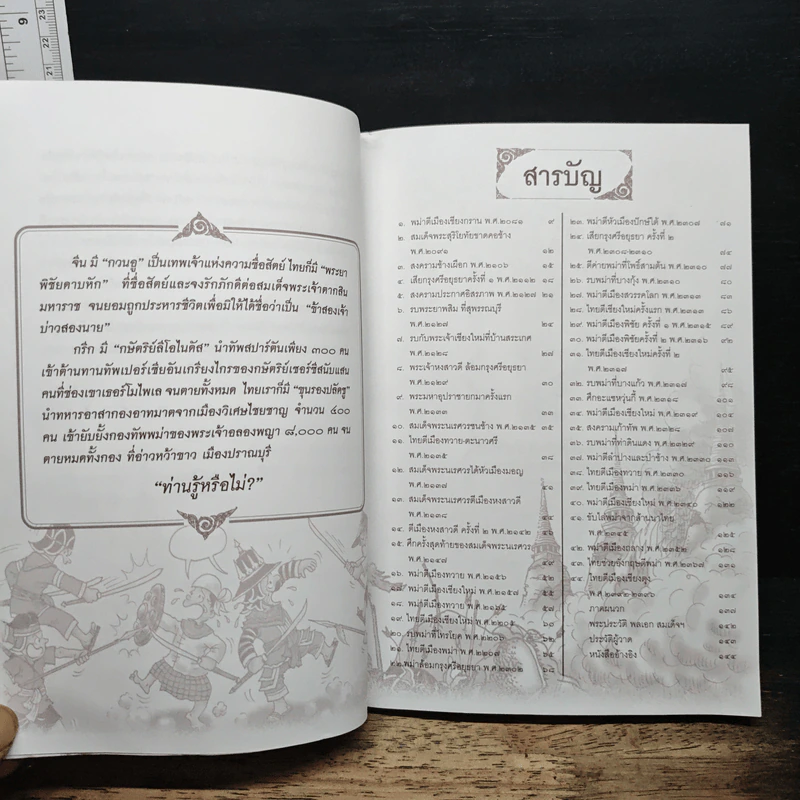 9
23
22
21
จีน มี “กวนอู” เป็นเทพเจ้าแห่งความซื่อสัตย์ ไทยก็มี “พระยา
พิชัยดาบหัก” ที่ซื่อสัตย์และจงรักภักดีต่อสมเด็จพระเจ้าตากสิน
มหาราช จนยอมถูกประหารชีวิตเพื่อมิให้ได้ชื่อว่าเป็น “ข้าสองเจ้า
บ่าวสองนาย”
กรีก มี “กษัตริย์ลีโอไนดัส” นำทัพสปาร์ตันเพียง ๓๐๐ คน
เข้าต้านทานทัพเปอร์เซียอันเกรียงไกรของกษัตริย์เซอร์ซีสนับแสน
คนที่ช่องเขาเธอร์โมไพเล จนตายทั้งหมด ไทยเราก็มี “ขุนรองปลัดชู”
นำทหารอาสากองอาทมาตจากเมืองวิเศษไชยชาญ จำนวน ๔๐๐
คน เข้ายับยั้งกองทัพพม่าของพระเจ้าอลองพญา ๘,๐๐๐ คน จน
ตายหมดทั้งกอง ที่อ่าวหว้าขาว เมืองปราณบุรี
“ท่านรู้หรือไม่?”
สารบัญ
๑. พม่าตีเมืองเชียงกราน พ.ศ.๒๐๘๑ ๙
๒. สมเด็จพระสุริโยทัยขาดคอช้าง
พ.ศ.๒๐๙๑ ๑๒
๓. สงครามช้างเผือก พ.ศ.๒๑๐๖ ๑๕
๔. เสียกรุงศรีอยุธยาครั้งที่ ๑ พ.ศ.๒๑๑๒ ๑๘
๕. สงครามประกาศอิสรภาพ พ.ศ.๒๑๒๗ ๒๑
๖. รบพระยาพสิม ที่สุพรรณบุรี
พ.ศ.๒๑๒๗ ๒๔
๗. รบกับพระเจ้าเชียงใหม่ที่บ้านสระเกศ
พ.ศ.๒๑๒๘ ๒๗
๘. พระเจ้าหงสาวดี ล้อมกรุงศรีอยุธยา
พ.ศ.๒๑๒๙ ๓๐
๙. พระมหาอุปราชายกมาครั้งแรก
พ.ศ.๒๑๓๓ ๓๓
๑๐. สมเด็จพระนเรศวรชนช้าง พ.ศ.๒๑๓๕ ๓๕
๑๑. ไทยตีเมืองทวาย-ตะนาวศรี
พ.ศ.๒๑๓๕
๑๒. สมเด็จพระนเรศวรได้หัวเมืองมอญ
พ.ศ.๒๑๓๗ ๔๑
๑๓. สมเด็จพระนเรศวรตีเมืองหงสาวดี
พ.ศ.๒๑๓๘ ๔๔
๑๔. ตีเมืองหงสาวดี ครั้งที่ ๒ พ.ศ.๒๑๔๒ ๔๖
๑๕. ศึกครั้งสุดท้ายของสมเด็จพระนเรศวร
พ.ศ.๒๑๔๗ ๔๙
๑๖. พม่าตีเมืองทวาย พ.ศ.๒๑๕๖ ๕๒
๑๗. พม่าตีเมืองเชียงใหม่ พ.ศ.๒๑๕๘ ๕๕
๑๘. พม่าตีเมืองทวาย พ.ศ.๒๑๖๕ ๕๗
๑๙. ไทยตีเมืองเชียงใหม่ พ.ศ.๒๒๐๕ ๖๐
๒๐. รบพม่าที่ไทรโยค พ.ศ.๒๒๐๖ ๖๒
๒๑. ไทยตีเมืองพม่า พ.ศ.๒๒๐๗ ๖๕
๒๒.พม่าล้อมกรุงศรีอยุธยา พ.ศ.๒๓๐๒ ๖๘
๒๓. พม่าตีหัวเมืองปักษ์ใต้ พ.ศ.๒๓๐๗ ๗๑
๒๔. เสียกรุงศรีอยุธยา ครั้งที่ ๒
พ.ศ.๒๓๐๘-๒๓๑๐ ๗๔
๒๕. ตีค่ายพม่าที่โพธิ์สามต้น พ.ศ.๒๓๑๐ ๗๗
๒๖. รบพม่าที่บางกุ้ง พ.ศ.๒๓๑๐ ๘๐
๒๗. พม่าตีเมืองสวรรคโลก พ.ศ.๒๓๑๓ ๘๓
๒๘. ไทยตีเมืองเชียงใหม่ครั้งแรก พ.ศ.๒๓๑๓ ๘๖
๒๙. พม่าตีเมืองพิชัย ครั้งที่ ๑ พ.ศ.๒๓๑๕ ๘๙
๓๐. พม่าตีเมืองพิชัยครั้งที่ ๒ พ.ศ.๒๓๑๖ ๙๒
๓๑. ไทยตีเมืองเชียงใหม่ครั้งที่ ๒
พ.ศ.๒๓๑๗ ๙๕
๓๒. รบพม่าที่บางแก้ว พ.ศ.๒๓๑๗ ๙๘
๓๓. ศึกอะแซหวุ่นกี้ พ.ศ.๒๓๑๘ ๑๐๑
๓๔. พม่าตีเมืองเชียงใหม่ พ.ศ.๒๓๑๙ ๑๐๔
๓๕. สงครามเก้าทัพ พ.ศ.๒๓๒๘ ๑๐๗
๓๖. รบพม่าที่ท่าดินแดง พ.ศ.๒๓๒๙ ๑๑๐
๓๗. พม่าตีลำปางและป่าซาง พ.ศ.๒๓๓๐ ๑๑๓
๓๘. ไทยตีเมืองทวาย พ.ศ.๒๓๓๐ ๑๑๖
๓๙. ไทยตีเมืองพม่า พ.ศ.๒๓๓๖ ๑๑๙
๔๐. พม่าตีเมืองเชียงใหม่ พ.ศ.๒๓๔๐ ๑๒๒
๔๑. ขับไล่พม่าจากล้านนาไทย
พ.ศ.๒๓๔๕ ๑๒๕
๔๒. พม่าตีเมืองถลาง พ.ศ.๒๓๕๒ ๑๒๘
๔๓. ไทยช่วยอังกฤษตีพม่า พ.ศ.๒๓๖๗ ๑๓๑
๔๔. ไทยตีเมืองเชียงตุง
พ.ศ.๒๓๙๒-๒๓๙๖ ๑๓๔
ภาคผนวก ๑๓๗
พระประวัติ พลเอก สมเด็จฯ ๑๔๐
ประวัติผู้วาด ๑๔๓
หนังสืออ้างอิง ๑๔๔